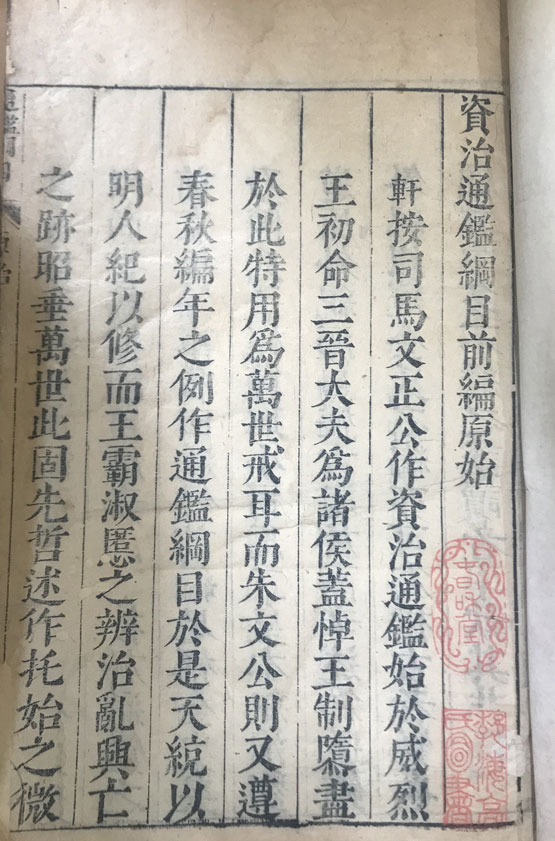 資治通鑑綱目前編原始
軒按司馬文正公作資治通鑑始於威烈
王初命三晉大夫為諸侯蓋悼王制隳盡
於此特用為萬世戒耳而朱文公則又遵
春秋編年之例作通鑑綱目於是天統以
明人紀以修而王霸淑慝之辨治亂興亡
之跡昭垂萬世此固先哲述作托始之微